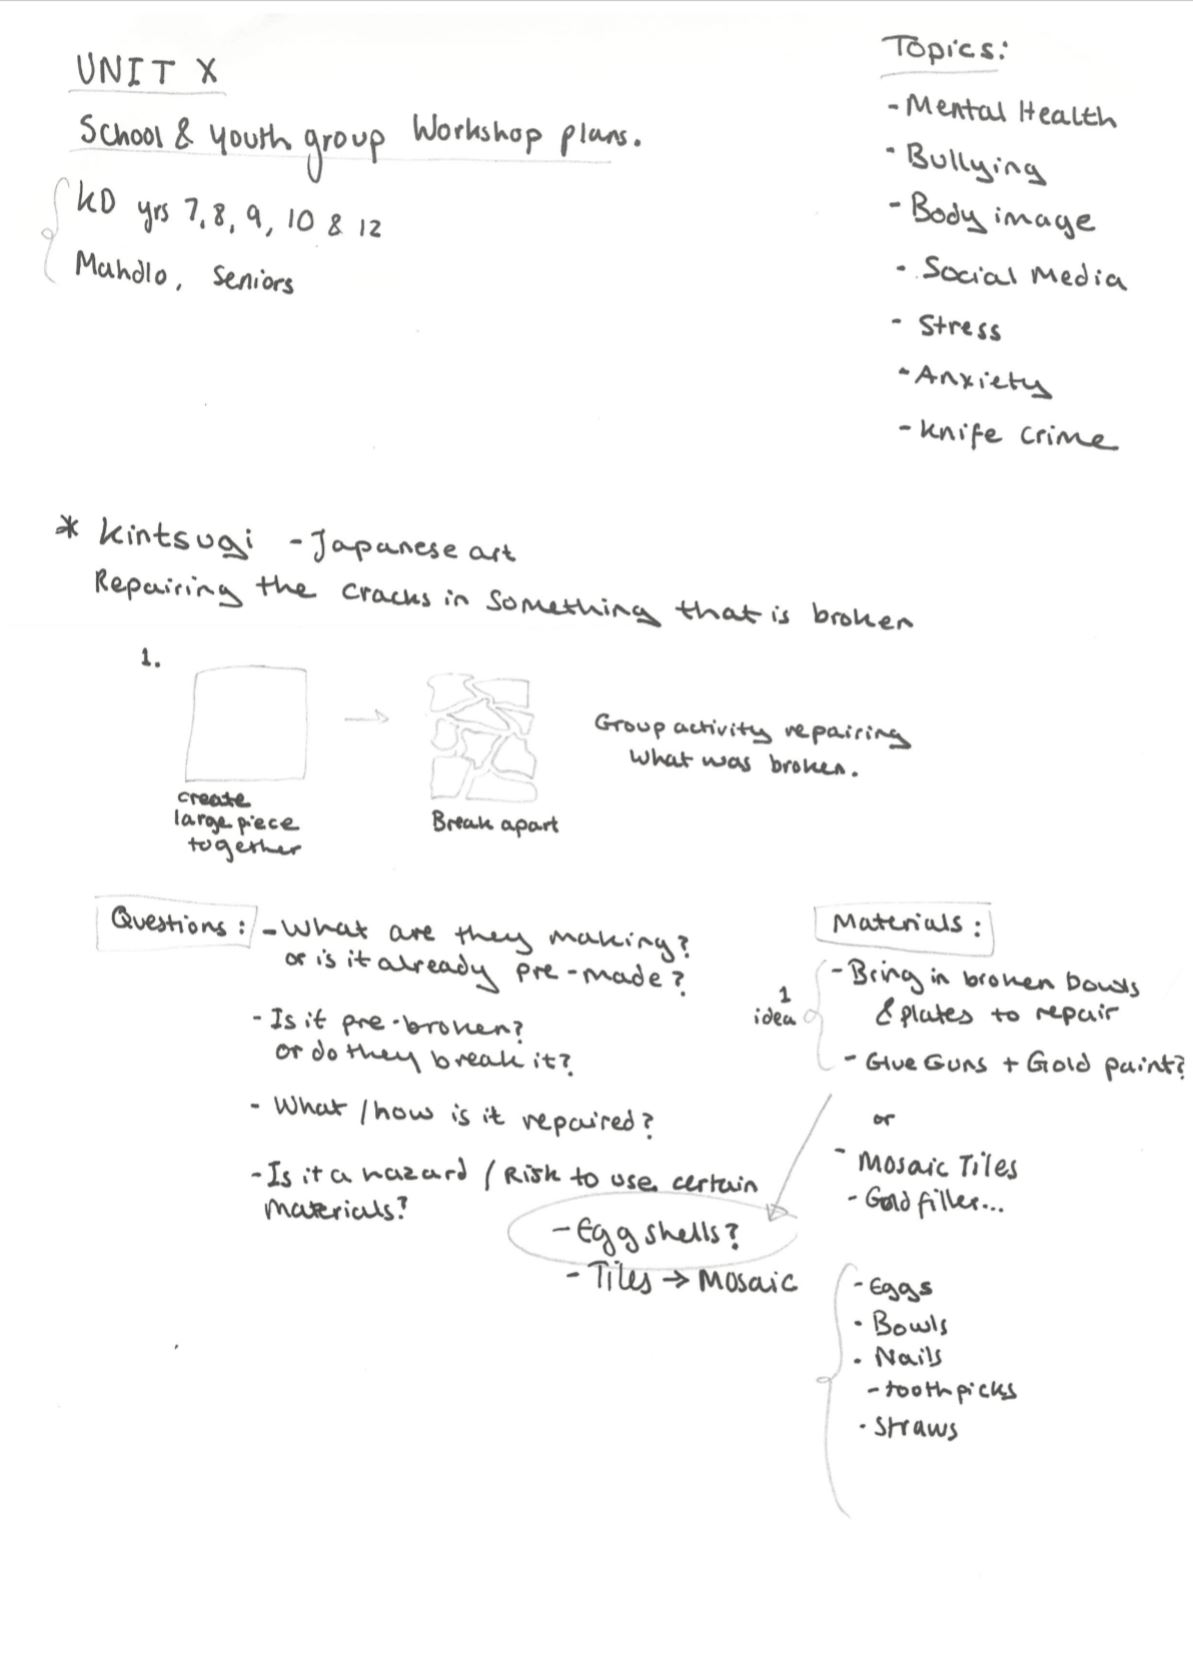 UNIT X
School & Youth group Workshop plans.
KD yrs 7, 8, 9, 10 & 12
Mahdlo, Seniors
Topics:
- Mental Health
- Bullying
- Body image
- Social Media
- Stress
- Anxiety
- Knife crime
* Kintsugi - Japanese art
Repairing the cracks in something that is broken
1.
create
large piece
together
Break apart
Group activity repairing
what was broken.
Questions: - What are they making?
or is it already pre-made?
- Is it pre-broken?
or do they break it?
- What / how is it repaired?
- Is it a hazard / Risk to use certain
materials?
- Egg shells?
- Tiles → Mosaic
Materials:
1
idea
- Bring in broken bowls
& plates to repair
- Glue Guns + Gold paint?
or
- Mosaic Tiles
- Gold filler...
- Eggs
- Bowls
- Nails
- toothpicks
- Straws